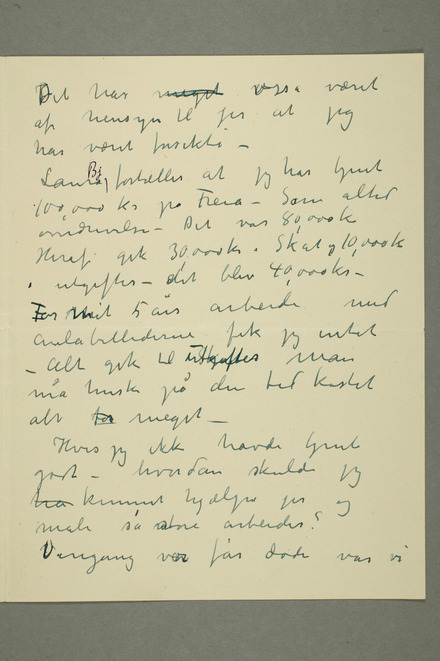 Det har meget også været
af hensyn til jer at jeg
har været forsikti –
Laura Bj fortæller at jeg har tjent
100,000 kr på Freia – Som altid
overdrivelse – Det var 80,000 k
Heraf gik 30,000 k i Skat og 10,000 k
i utgifter – det blev 40,000 kr –
For mit 5 års arbeide med
aulabillederne fik jeg intet
– alt gik til utgifter man
må huske på den tid kostet
alt for meget –
Hvis jeg ikke havde tjent
godt – hvordan skulde jeg
ha kunnet hjælpe jer og
male så store arbeider?
Dengang var far døde var vi